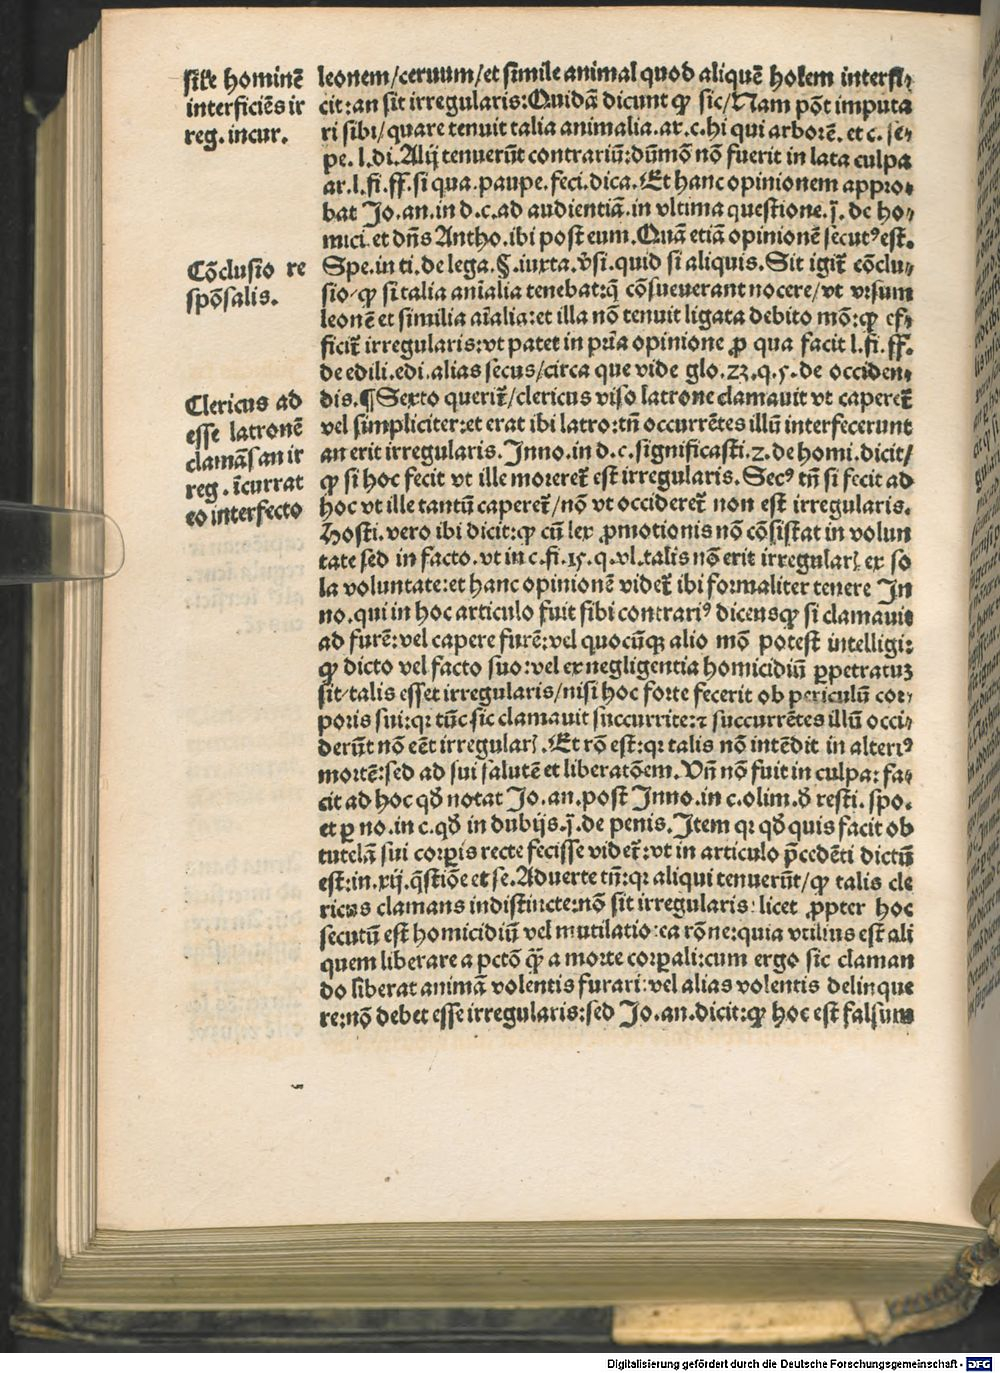 sile hominē
interficiēs ir
reg. incur.
Cōclusio re
spōsalis.
Clericus ad
esse latronē
clamās an ir
reg. īcurrat
eo interfecto
leonem/ceruum/et simile animal quod aliquē hoīem interfi⸗
cit:an sit irregularis:Quidā dicunt ꝙ sic/Nam pōt imputa
ri sibi/quare tenuit talia animalia.ar.c.hi qui arborē. et c. se⸗
pe. l.di. Alij tenuerūt contrariū:dūmō nō fuerit in lata culpa
ar.l.fi.ff.si qua.paupe.feci.dica. Et hanc opinionem appro⸗
bat Jo.an.in d.c.ad audientiā.in vltima questione.j̄. de ho⸗
mici. et dn̄s Antho.ibi post eum. Quā etiā opinionē secutꝰ est.
Spe.in ti.de lega.§.iuxta.v̄si.quid si aliquis.Sit igit̄ cōclu⸗
sio/ꝙ si talia aīalia tenebat:q̄ cōsueuerant nocere/vt vrsum
leonē et similia aīalia:et illa nō tenuit ligata debito mō:ꝙ ef⸗
ficit̄ irregularis:vt patet in pr̄ia opinione ꝓ qua facit l.fi.ff.
de edili.edi.alias secus/circa que vide glo.23.q.5.de occiden⸗
dis.¶Sexto querit̄/clericus viso latrone clamauit vt caperet̄
vel simpliciter:et erat ibi latro:tn̄ occurrētes illū interfecerunt
an erit irregularis. Inno.in d.c.significasti.2.de homi.dicit/
ꝙ si hoc fecit vt ille moreret̄ est irregularis. Secꝰ tn̄ si fecit ad
hoc vt ille tantū caperet̄/nō vt occideret̄ non est irregularis.
Hosti.vero ibi dicit:ꝙ cū lex ꝓmotionis nō cōsistat in volun
tate sed in facto.vt in c.fi.15.q.vl.talis nō erit irregularꝭ ex so
la voluntate:et hanc opinionē videt̄ ibi formaliter tenere In
no.qui in hoc articulo fuit sibi contrariꝰ dicens ꝙ si clamauit
ad furē:vel capere furē:vel quocūqꝫ alio mō potest intelligi:
ꝙ dicto vel facto suo:vel ex negligentia homicidiū ꝑpetratuꝫ
sit/talis esset irregularis/nisi hoc forte fecerit ob periculū cor⸗
poris sui:qꝛ tūc sic clamauit succurrite:ꝛ succurrētes illū occi⸗
derūt nō eēt irregularꝭ. Et rō est:qꝛ talis nō intēdit in alteriꝰ
mortē:sed ad sui salutē et liberatōem. Vn̄ nō fuit in culpa: fa⸗
cit ad hoc qd̄ notat Jo.an.post Inno.in c.olim.d̄ resti.spo.
et ꝑ no.in c.qd̄ in dubijs.j̄.de penis. Item qꝛ qd̄ quis facit ob
tutelā sui corꝑis recte fecisse videt̄:vt in articulo p̄cedēti dictū
est:in.xij.q̄stiōe et se. Aduerte tn̄:qꝛ aliqui tenuerūt/ꝙ talis cle
ricus clamans indistincte:nō sit irregularis:licet ꝓpter hoc
secutū est homicidiū vel mutilatio:ea rōne:quia vtilius est ali
quem liberare a pctō q̄ a morte corꝑali:cum ergo sic claman
do liberat animā volentis furari:vel alias volentis delinque
re:nō debet esse irregularis:sed Jo.an.dicit:ꝙ hoc est falsum
Digitalisierung gefördert durch die Deutsche Forschungsgemeinschaft - DFG